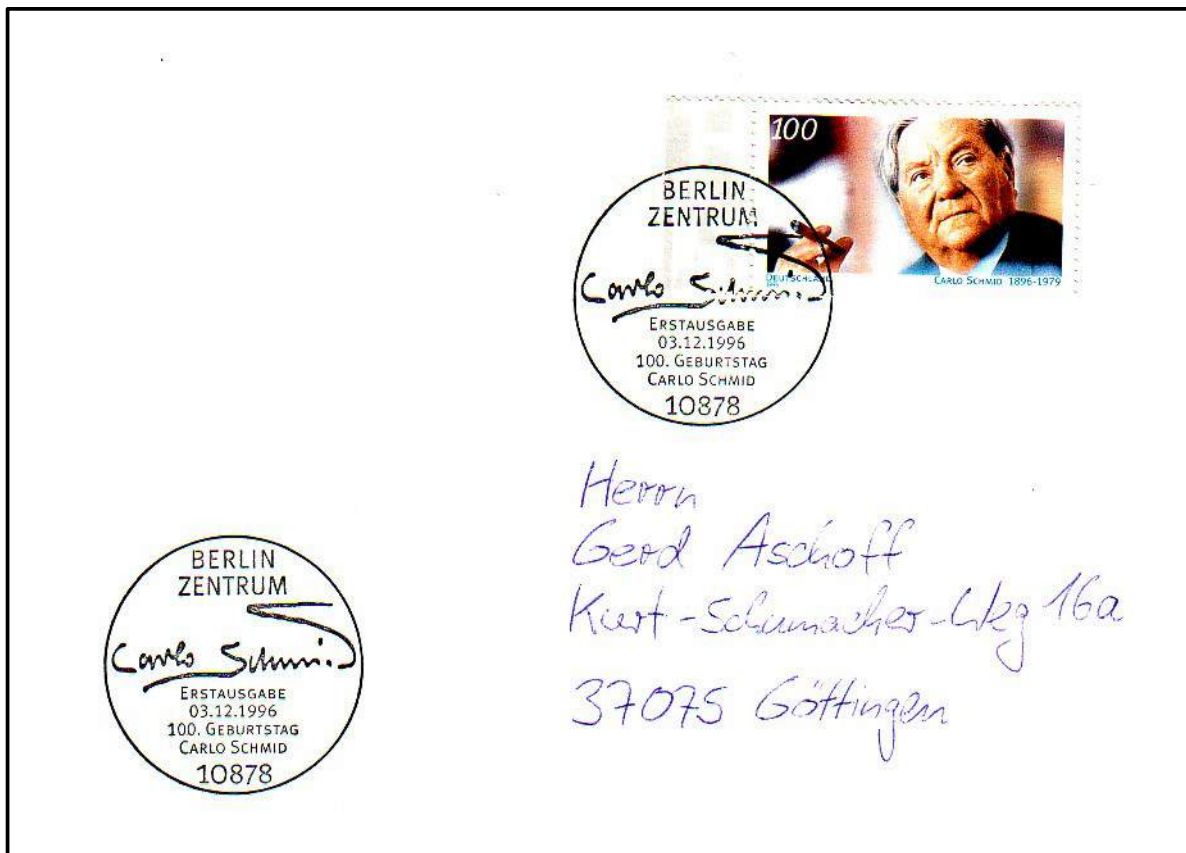 100
DEUTSCHLAND
1996
CARLO SCHMID 1896-1979
BERLIN
ZENTRUM
Carlo Schmid
ERSTAUSGABE
03.12.1996
100. GEBURTSTAG
CARLO SCHMID
10878
Herrn
Gerd Aschoff
Kurt-Schumacher-Weg 16a
37075 Göttingen
BERLIN
ZENTRUM
Carlo Schmid
ERSTAUSGABE
03.12.1996
100. GEBURTSTAG
CARLO SCHMID
10878